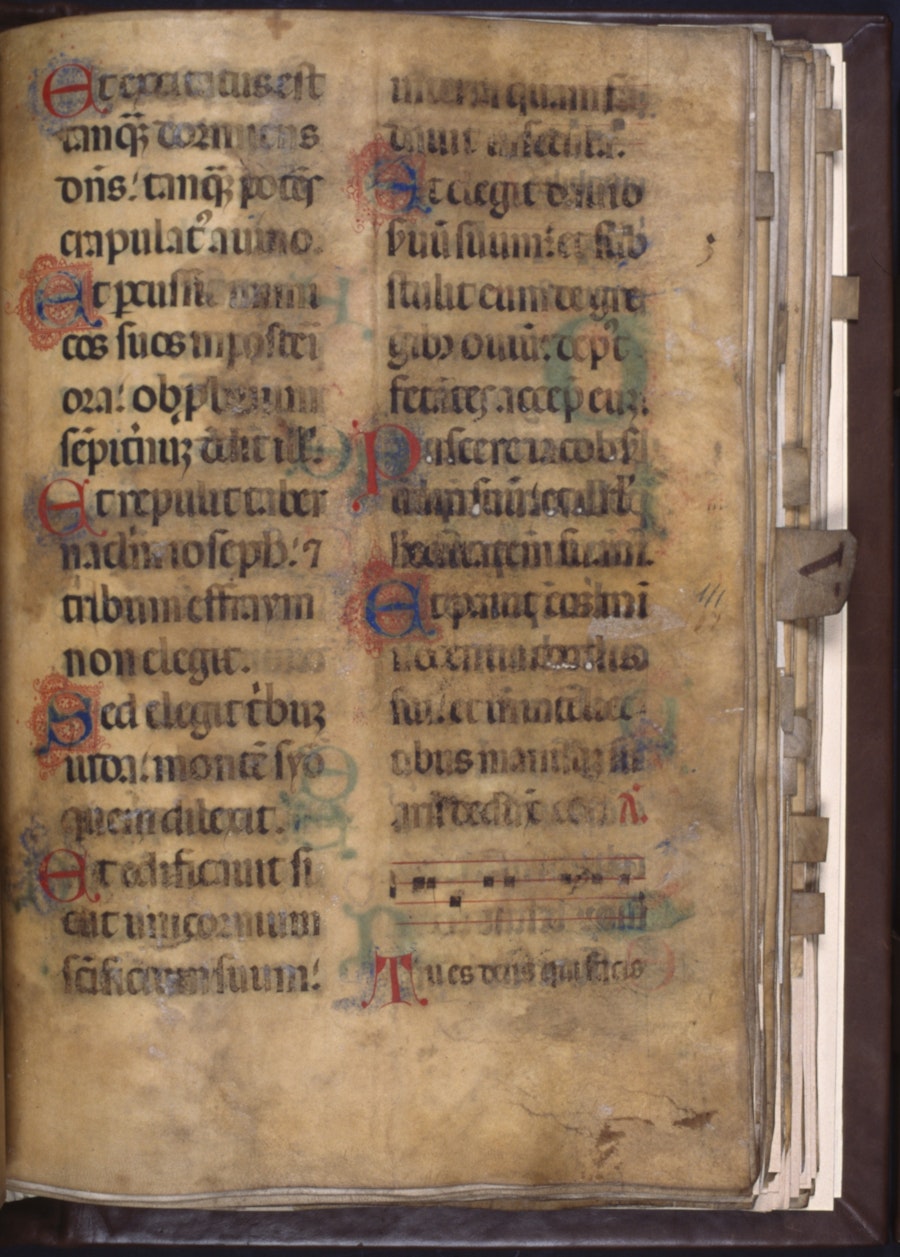 Et excitatus est
tanqȝ dormiens
dn̄s: tanqȝ potēs
crapulat᷒ a uino.
Et ꝑcussit inimi
cos suos in posteri
ora: obp̱brium
sēpit̄nuȝ dedit ill᷒.
Et repulit taber
nac̄lm ioseph: ⁊
tribum effraym
non elegit.
Sed elegit t̄buȝ
iuda: montē syō
quem dilexit.
Et edificauit si
cut unicornium
sc̄ificium suum:
in terra quam fū
dauit in sec̄la.
Et elegit dauid
ẜuū suum: et sub
stulit eum de gre
gibȝ ouiū: de pꝰt
fetātes accep̄ euȝ.
Pascere iacob ẜ
uum suū: et isrl̄
hereditatem suam.
Et pauit eos in i
nocentia cordis
sui: et in intellec
tibus manuū su
arū deduxit eos. A.
Tu es deus qui facis